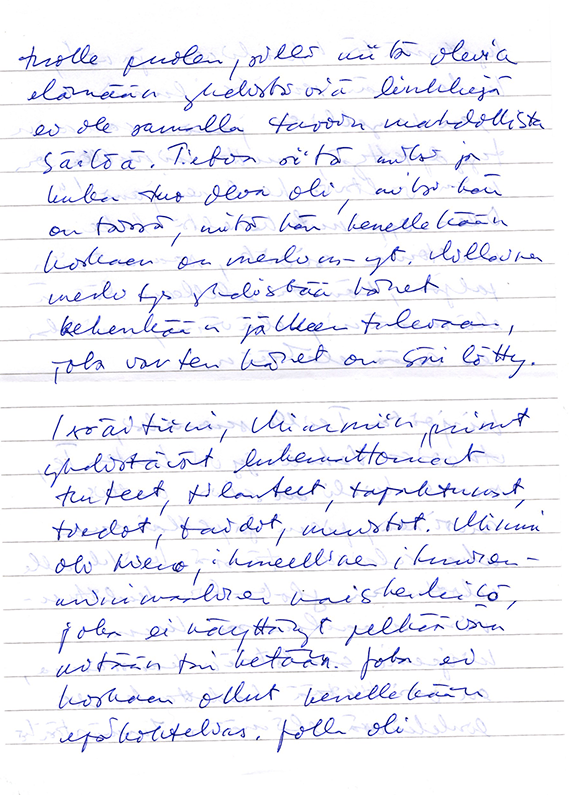 tuolle puolen, sillä niitä olevia
elämään yhdistäviä linkkejä
ei ole samalla tavoin mahdollista
säilöä. Tietoa siitä miksi ja
kuka tuo olva oli, miksi hän
on tässä, mitä hän kenellekään
koskaan on merkinn-yt. Millainen
merkitys yhdistää hänet
kehenkään jälkeen tulevaan,
jota varten hänet on säilötty.
Isoäitiini, Minniin, minut
yhdistävät lukemattomat
tunteet, tilanteet, tapahtumat,
tiedot, taidot, muistot. Minni
oli hieno, ihmeellinen ihmisen-
joka ei näyttänyt pelkäävän
mitään tai ketään. Joka ei
koskaan ollut kenellekään
epäkohtelias. Jolla oli